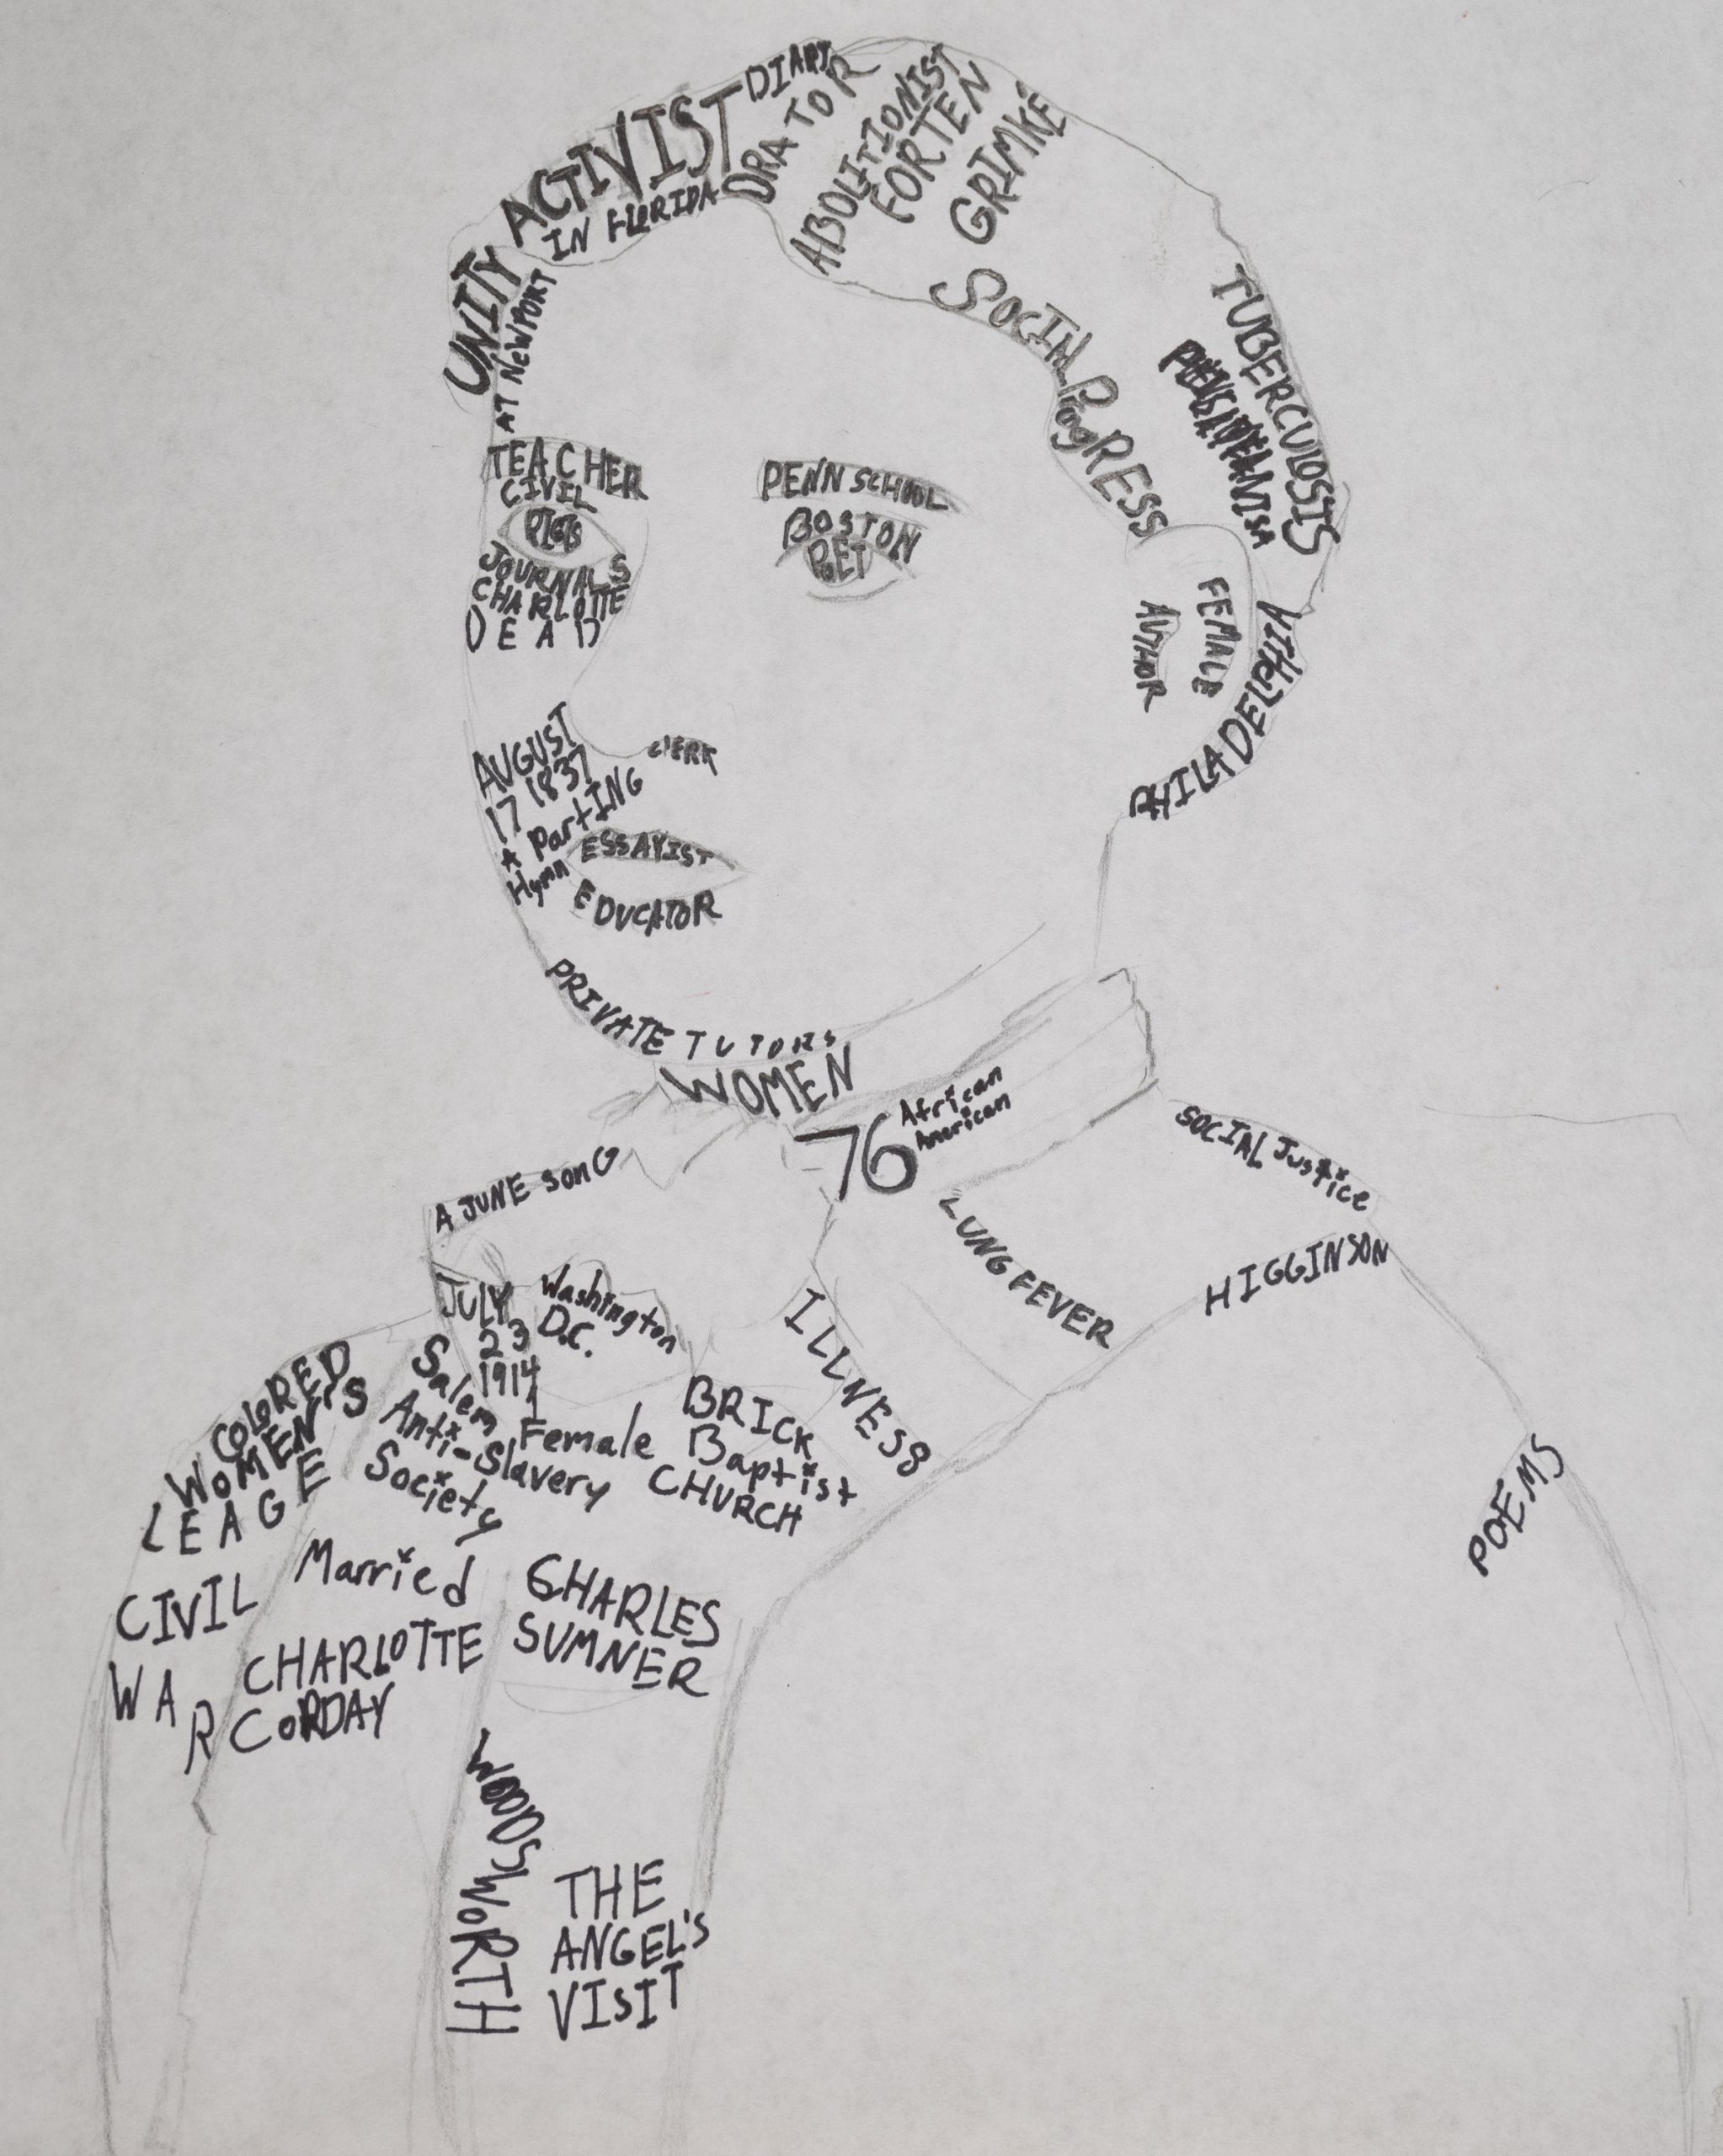 DIARY
ACTIVIST
IN FLORIDA
ORATOR
ABOLITIONIST
FORTEN
GRIMKÉ
UNITY
AT NEWPORT
SOCIAL PRogRESS
TUBERCULOSIS
TEACHER
CIVIL
JOURNALS
CHARLOTTE
DEAD
PENN SCHOOL
BOSTON
POET
FEMALE
AUTHOR
PHILADELPHIA
AUGUST
17 1837
CIERK
A PartING
Hymn
ESSAYIST
EDUCATOR
PRIVATE TUTORS
WOMEN
76
African
American
A JUNE SONG
SOCIAL Justice
LUNG FEVER
HIGGINSON
JULY
23
1914
Washington
D.C.
ILLNESS
COLORED
WOMEN'S
LEAGE
Salem
Female
Anti-Slavery
Society
BRICK
Baptist
CHURCH
POEMS
CIVIL
WAR
Married
CHARLES
SUMNER
CHARLOTTE
CORDAY
WOODSWORTH
THE
ANGEL'S
VISIT